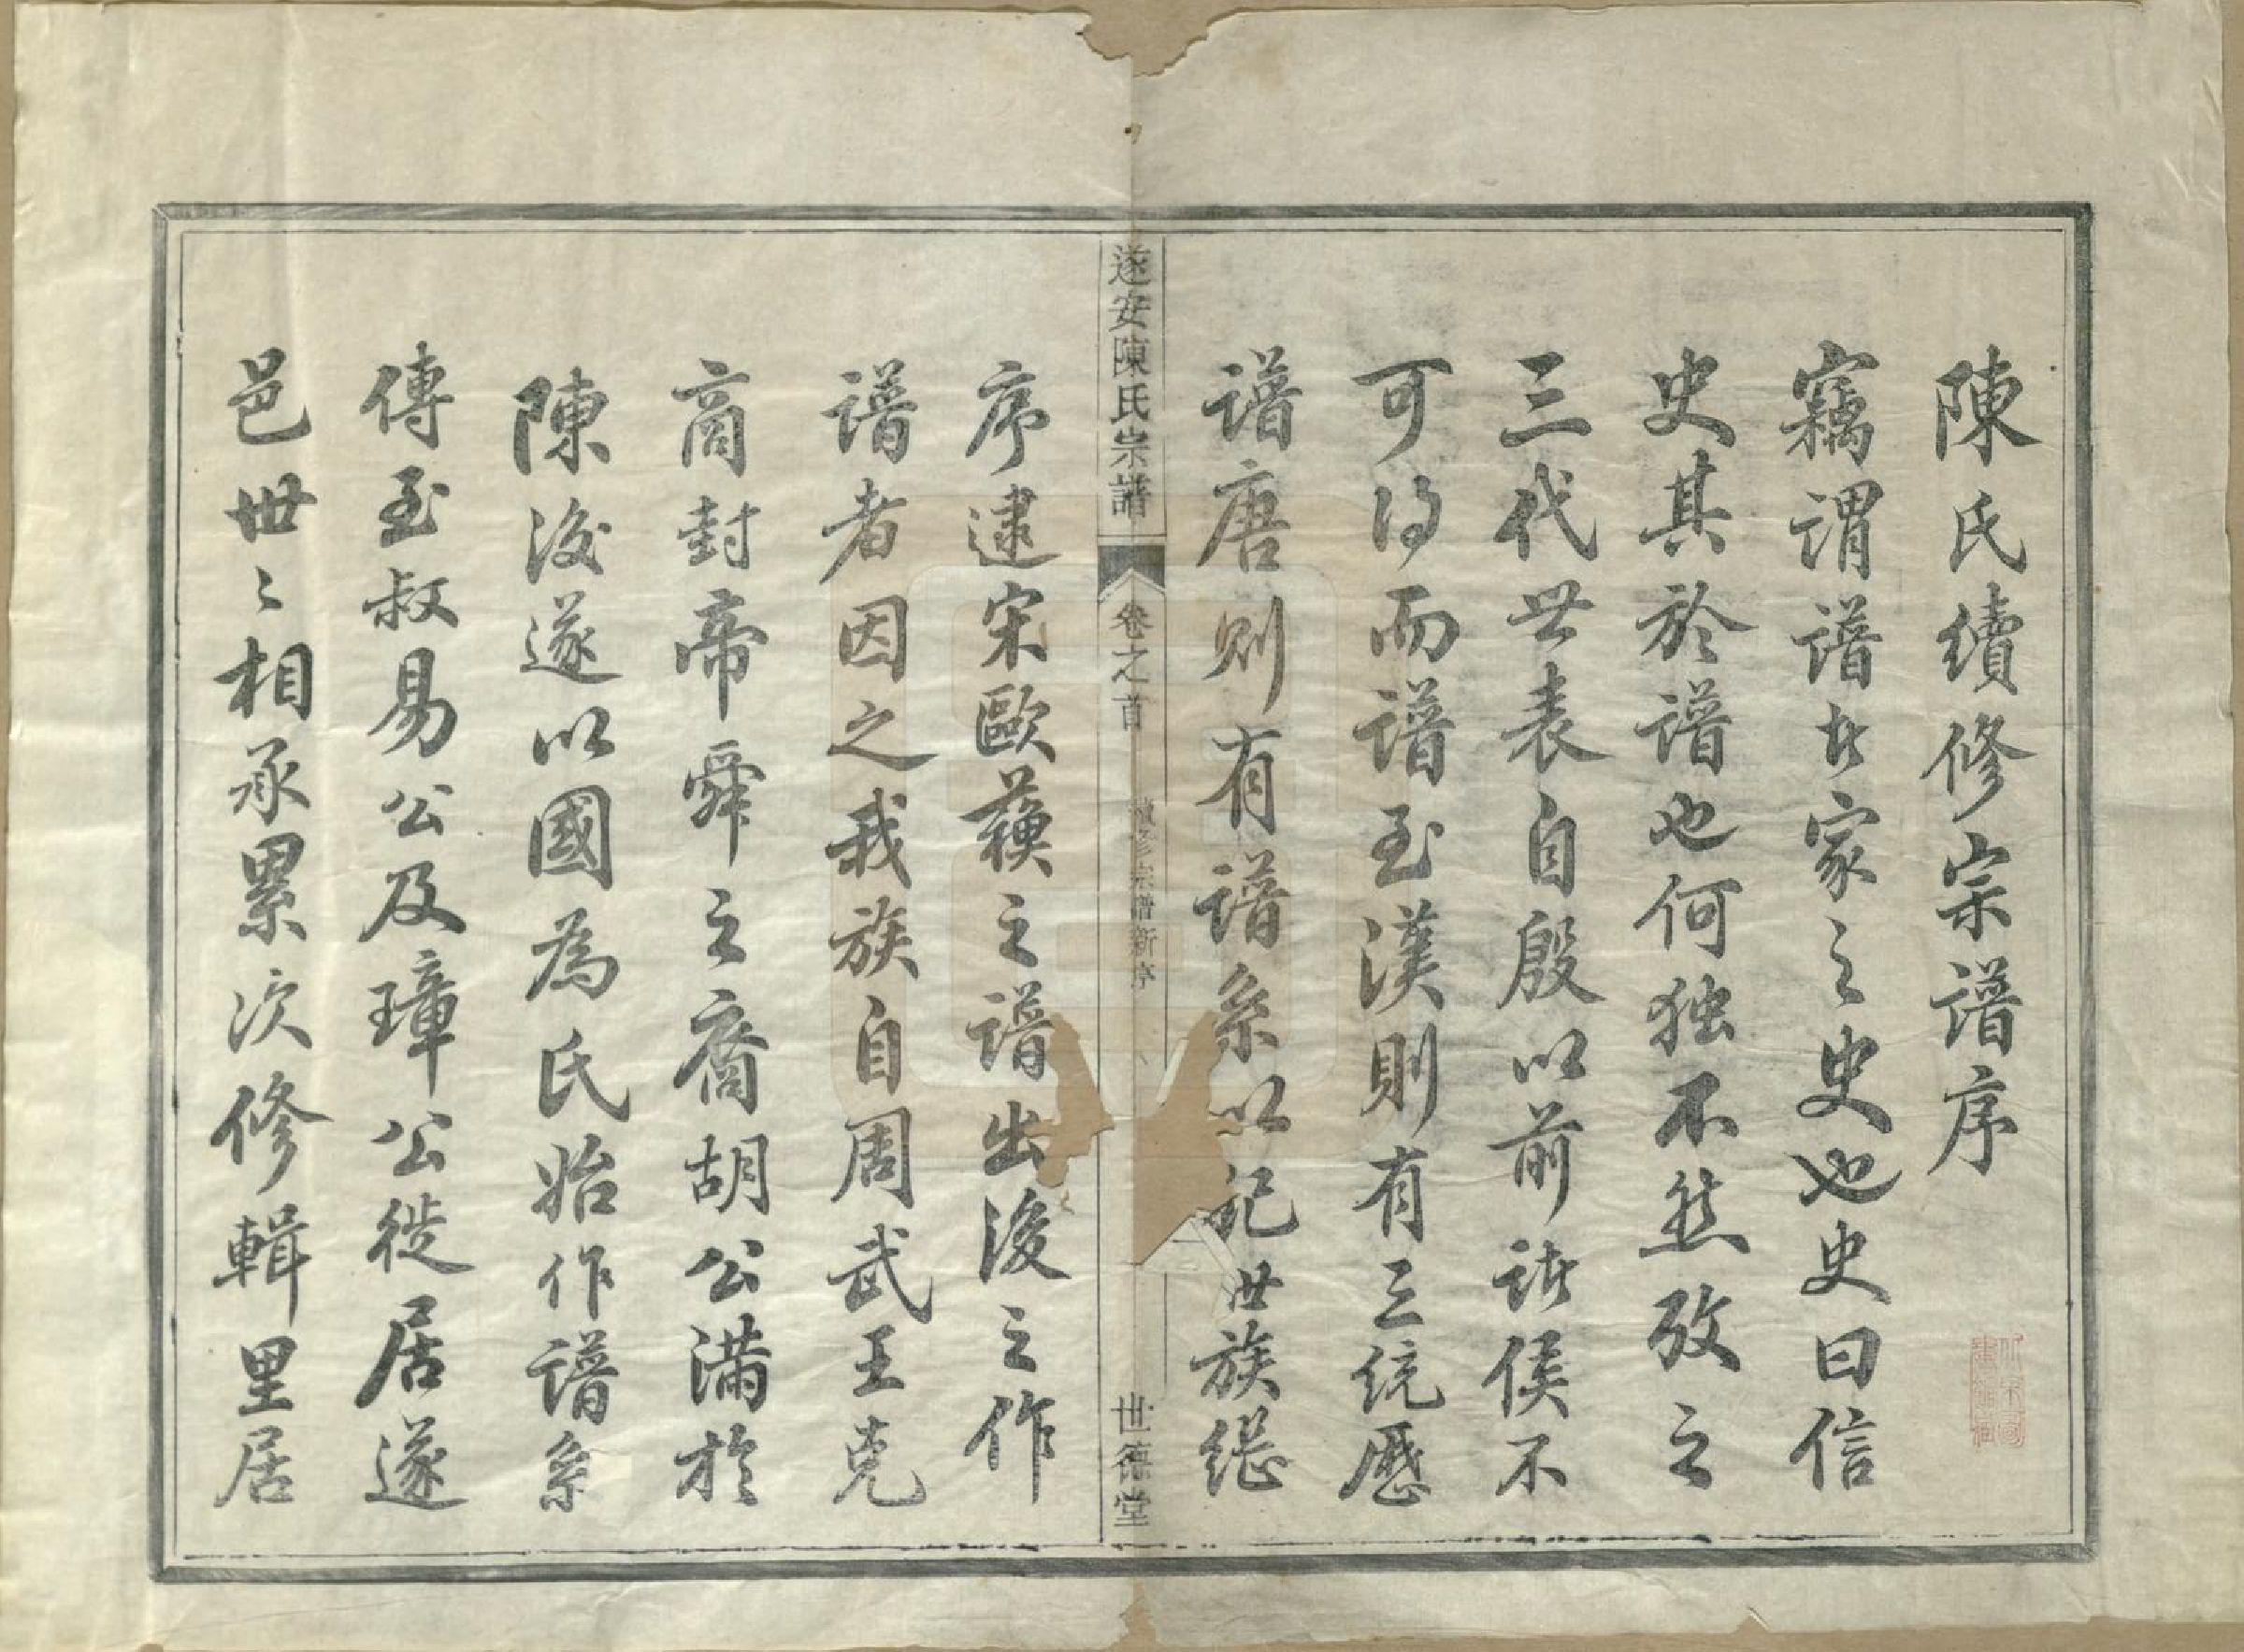 陳氏續修宗譜序
竊謂譜者家之史也史曰信
史其於譜也何独不然攷之
三代世表自殷以前諸侯不
可得而譜至漢則有三统歷
譜唐則有譜系以記世族继
遂安陳氏宗譜 卷之首 續修宗譜新序 世德堂
序逮宋歐蘓之譜出後之作
譜者因之我族自周武王克
商封帝舜之裔胡公满於
陳後遂以國為氏始作譜系
傳至叔易公及璋公徙居遂
邑世〻相承累次修輯里居